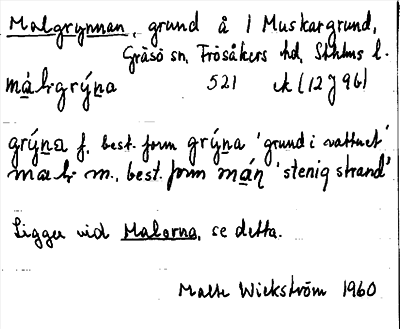 Malgrynnan, grund å 1 Muskargrund,
Gräsö sn, Frösåkers hd, Sthlms l.
máḷgrýna 521 ek (12 J 9 b)
grýna f. best. form grýna 'grund i vattnet'
maḷ m., best. form máṇ 'stenig strand'
Ligger vid Malorna, se detta.
Malte Wickström 1960